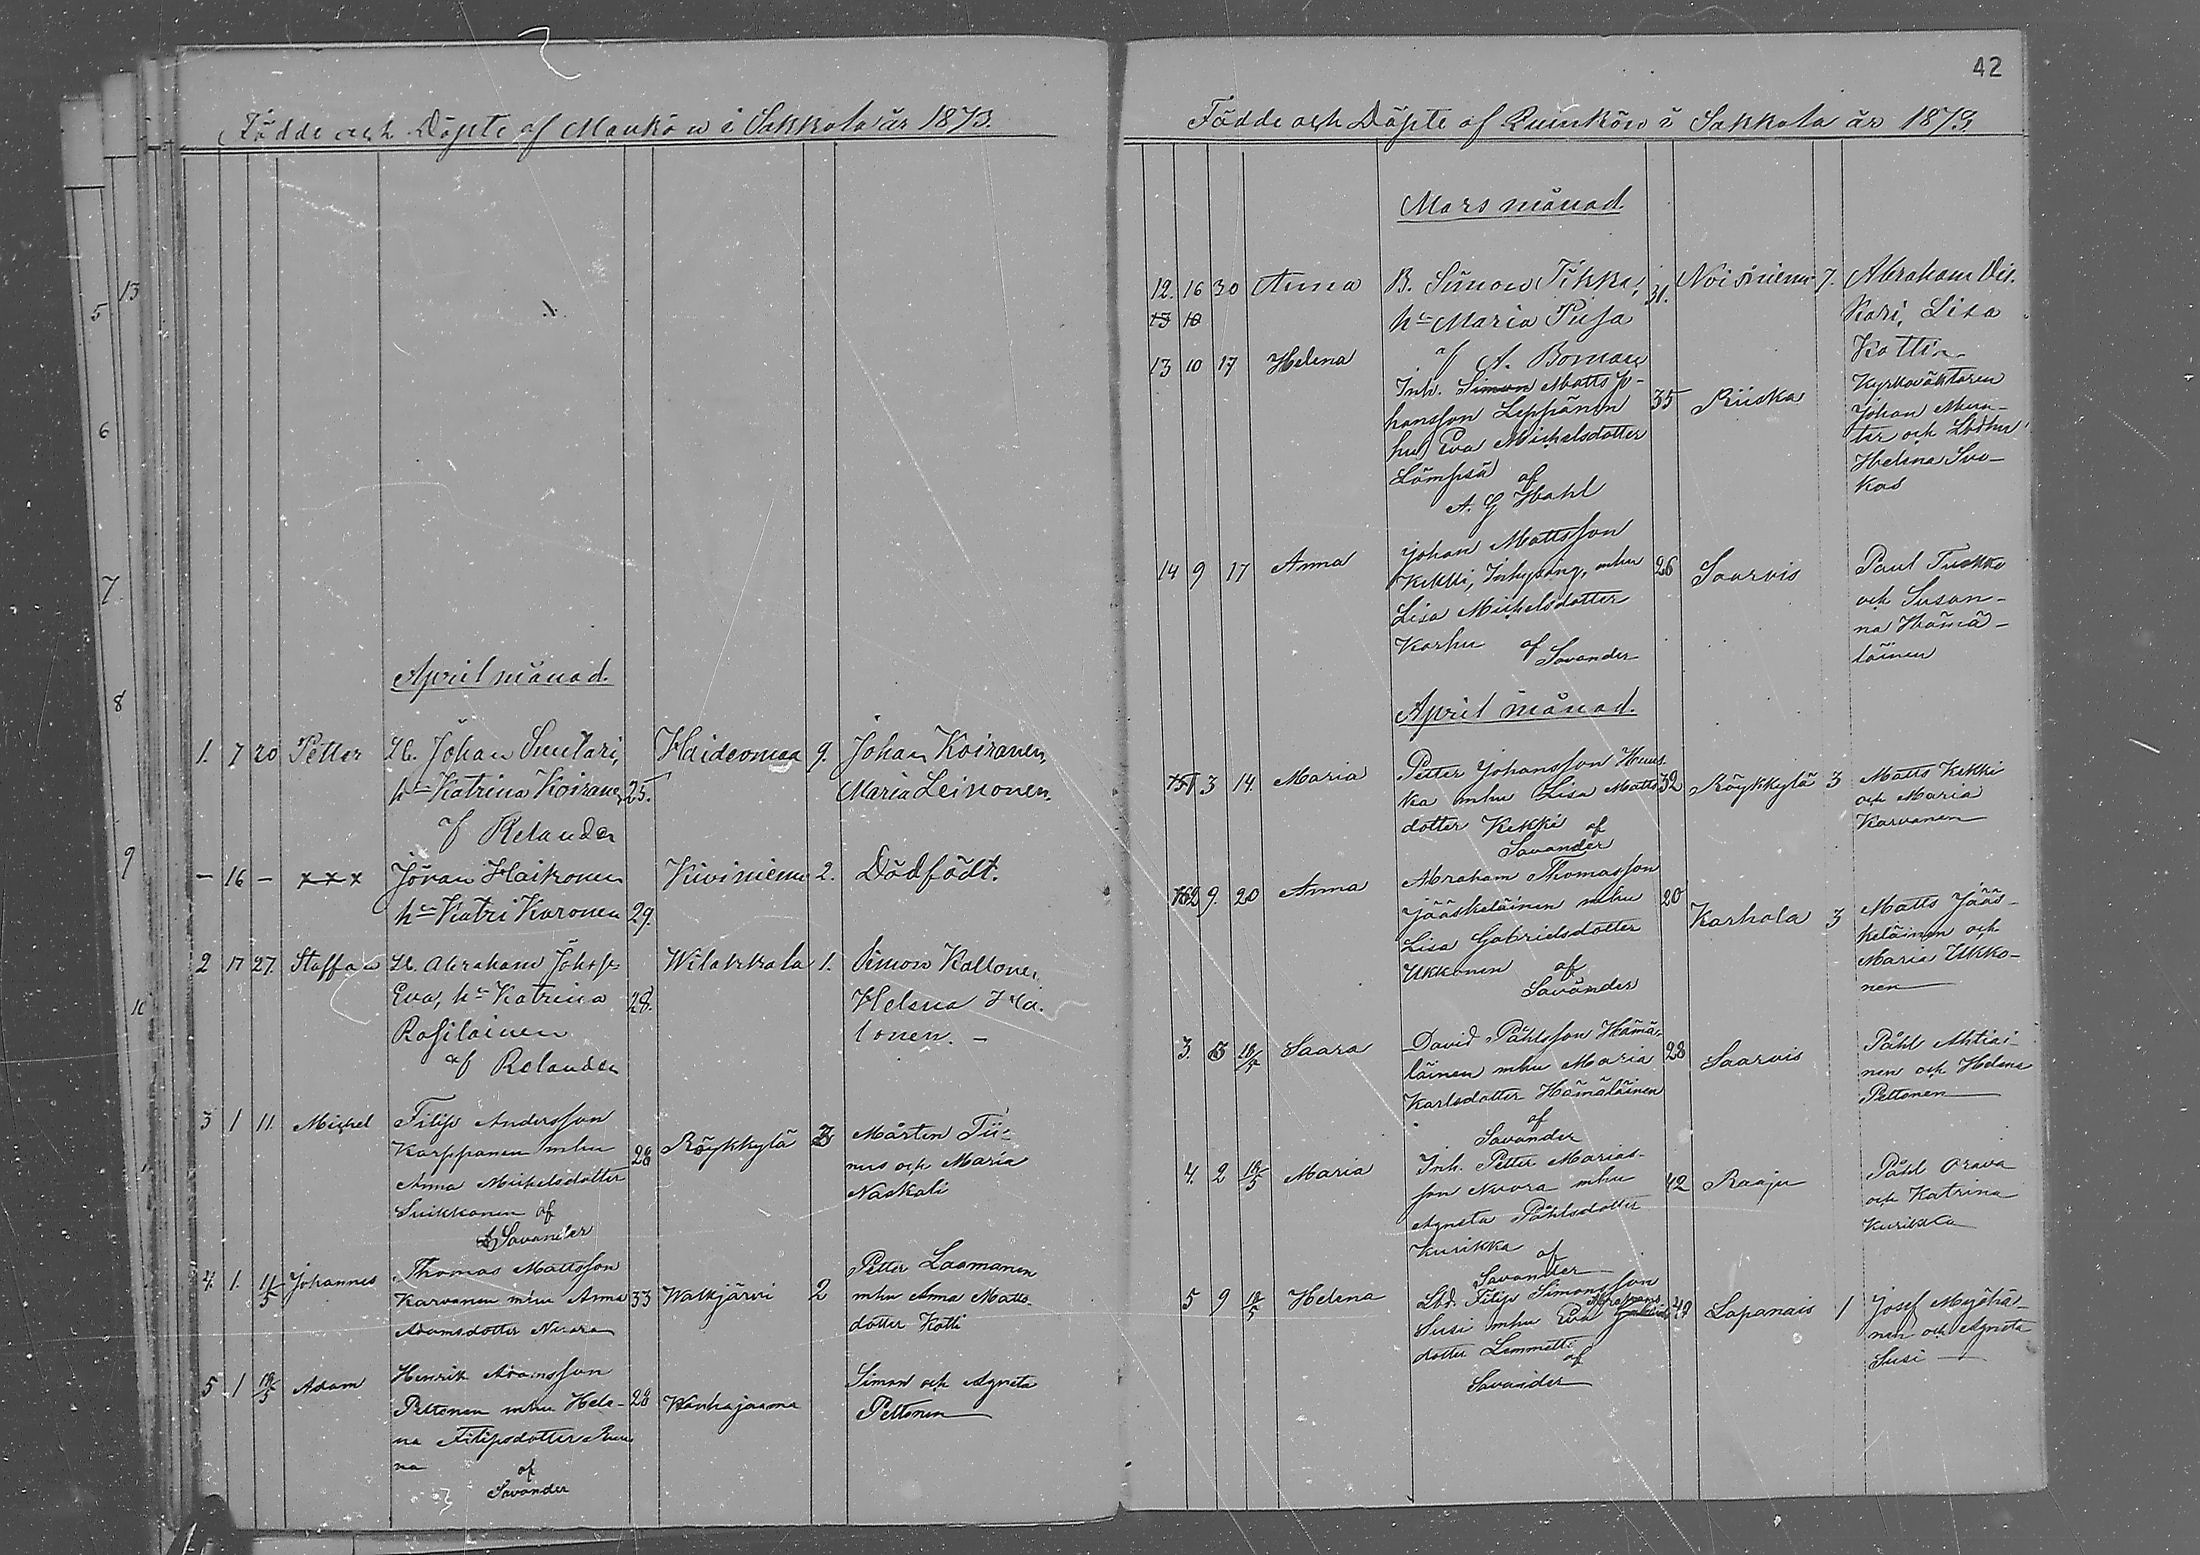 Födde och Döpte af Mankön i Sakkola år 1873.
April månad.
1. 7 20 Petter
Johan Suutari,
hu Katrina Koiranen 25.
af Relander
Haideomaa 9.
Johan Koiranen,
Maria Leinonen.
— 16 — xxx
Jöran Haikonen
hu Katri Karonen 29.
Kiviniemi 2.
Dödfödt.
2 17 27. Staffan
Abraham Johsson
Eva, hu Katrina 28.
Rosilainen
af Relander
Wilakkala 1.
Simon Kallonen
Helena Ha-
lonen. —
3 1 11 Michel
Filip Andersson
Karppanen mhu 28
Anna Michelsdotter
Suikkanen af
Savander
Röykkylä
Mårten Tii-
nus och Maria
Naskali
4. 1. 11/5 Johannes
Thomas Mattsson
Karvanen mhu Anna 33
Adamsdotter Nuora
Walkjärvi 2
Petter Laamanen
mhu Anna Matts-
dotter Kotti
5 1 18/5 Adam
Henrik Adamsson
Peltonen mhu Hele- 28
na Filipsdotter
na af
Savander
Wanhajaama
Simon och Agneta
Peltonen
42
Födde och Döpte af Quinkön i Sakkola år 1873
Mars månad.
12. 16 30 Anna
B. Simon Tikka, 31.
hu Maria Pusa
Noisniemi 7.
Abraham Dit.
Kari, Lisa
Kottin
13 10
13 10 17 Helena
af A. Boman
Inh. Simon Matts Jo-
hansson Leppänen 35
hu Eva Michelsdotter
Lämpsä af
A. G Hahl
Riiska
Kyrkoväktaren
Johan Mura-
tar och Lbdhu
Helena Svo-
kas
14 9 17 Anna
Johan Mattsson
Kekki, Inhysing, mhu 26
Lisa Michelsdotter
Karhu af
Savander
Saarvis
Paul Tuokko
och Susan-
na Hämä-
läinen
April månad.
1 3 14. Maria
Petter Johansson Huus-
ka mhu Lisa Matts 32
dotter Kekki af
Savander
Röykkylä 3
Matts Kekki
och Maria
Karvanen
2 9. 20 Anna
Abraham Thomasson
Jääskeläinen mhu 20
Lisa Gabrielsdotter
Ukkonen af
Savander
Karhola 3
Matts Jääs-
keläinen och
Maria Ukko-
nen
3. Saara
David Påhlsson Hämä-
läinen mhu Maria 28
Karlsdotter Hämäläinen
af
Savander
Saarvis
Påhl Ahtiai-
nen och Helena
Peltonen
4. 2 Maria
Inh. Petter Marias-
son Nuora mhu 42
Agneta Påhlsdotter
Kurikka af
Savander
Raaju
Påhl Orava
och Katrina
Kurikka
5 9 Helena
Lbd. Filip Simonsson
Susi mhu Eva Abrahams
dotter Lemmetti
af
Savander
Lapanais 1
Josef Myöhä-
nen och Agneta
Susi
5
13
6
7
8
9